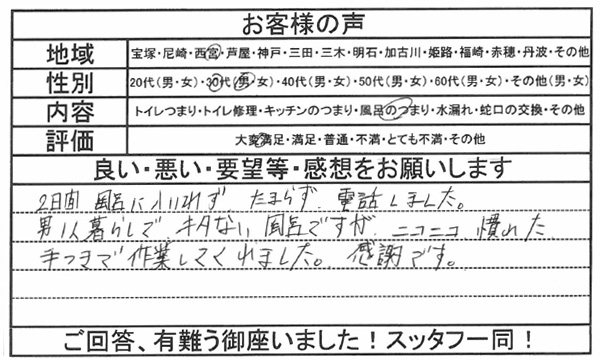 お客様の声
地域 宝塚・尼崎・西宮・芦屋・神戸・三田・三木・明石・加古川・姫路・福崎・赤穂・丹波・その他
性別 20代(男・女)・30代(男・女)・40代(男・女)・50代(男・女)・60代(男・女)・その他(男・女)
内容 トイレつまり・トイレ修理・キッチンのつまり・風呂のつまり・水漏れ・蛇口の交換・その他
評価 大変満足・満足・普通・不満・とても不満・その他
良い・悪い・要望等・感想をお願いします
2日間 風呂に入れず たまらず、電話しました。
男1人暮らしで、キタない風呂ですが、ニコニコ 慣れた
手つきで作業してくれました。感謝です。
ご回答、有難う御座いました！スッタフ一同！